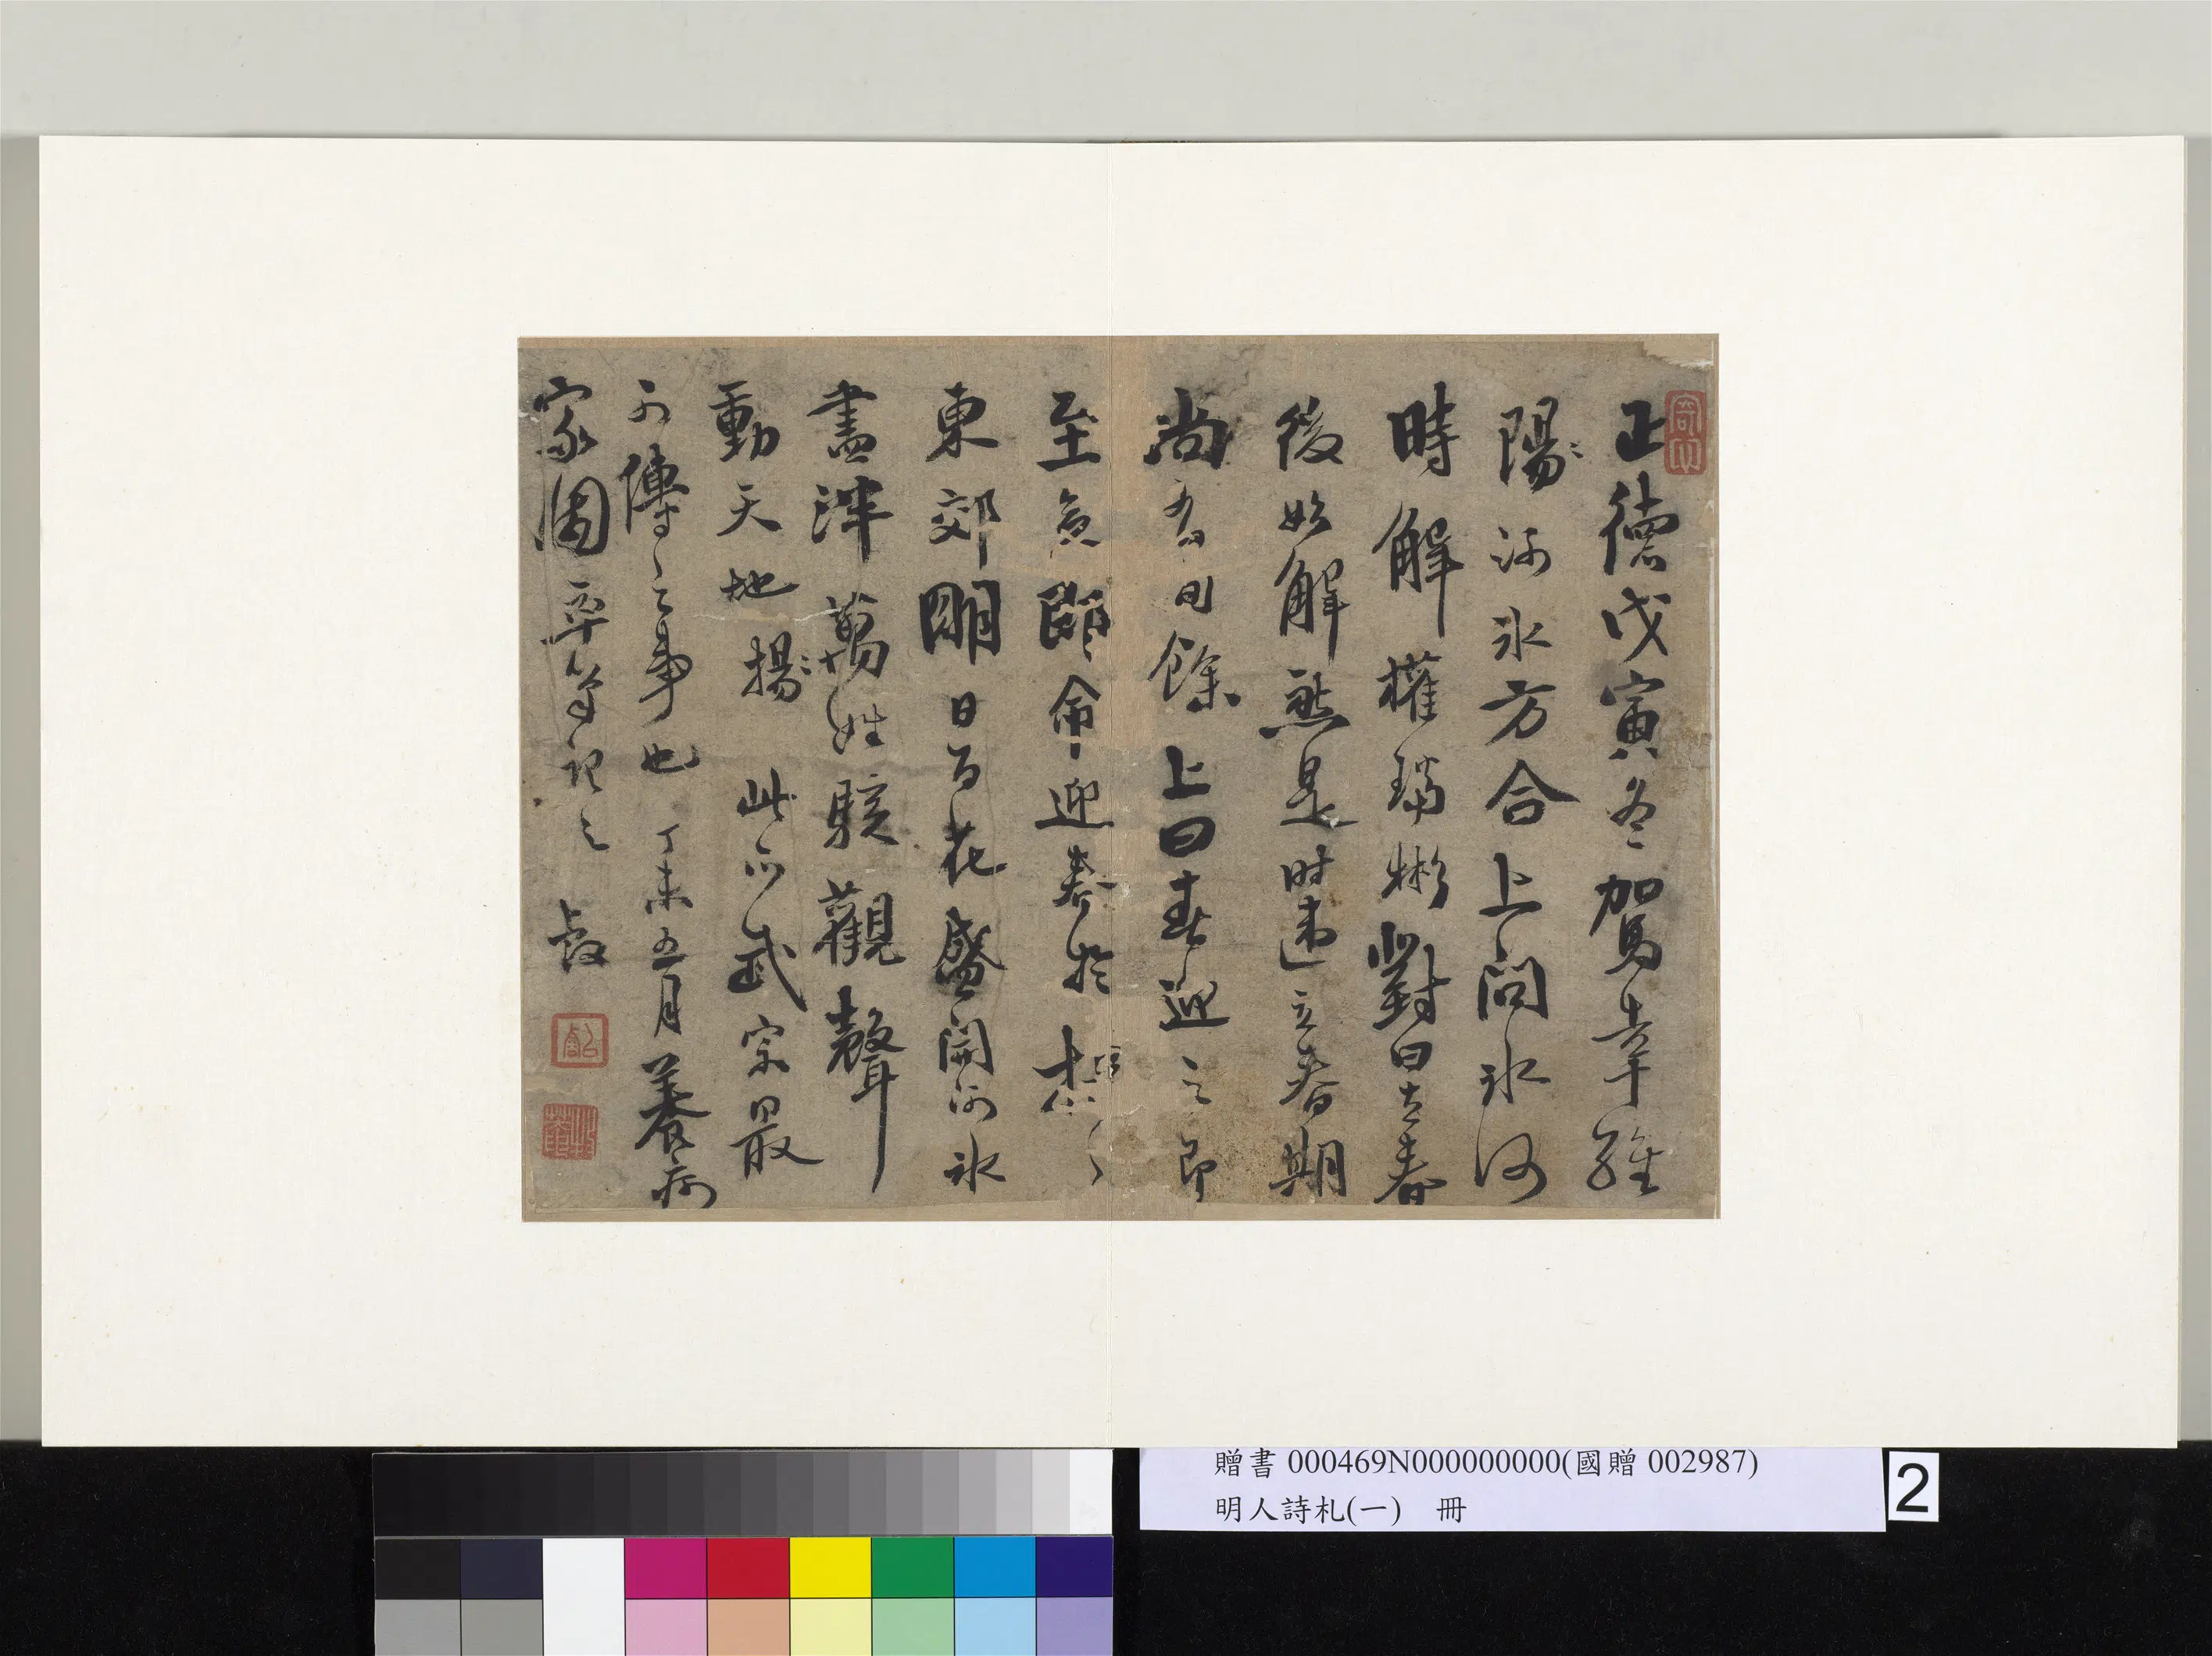 正德戊寅冬駕幸維
陽河氷方合上問氷河
時解權璫彬對曰立春
後始解然是時速立春期
尚有旬餘上曰春迎之即
至矣即命迎春於
東郊明日百花盛開河氷
盡泮萬姓駭觀聲
動天地揚 此亦武宗最
可傳之事也丁未五月養病
家園卒筆記之
贈書 000469N000000000(國贈 002987)
明人詩札(一) 冊
2